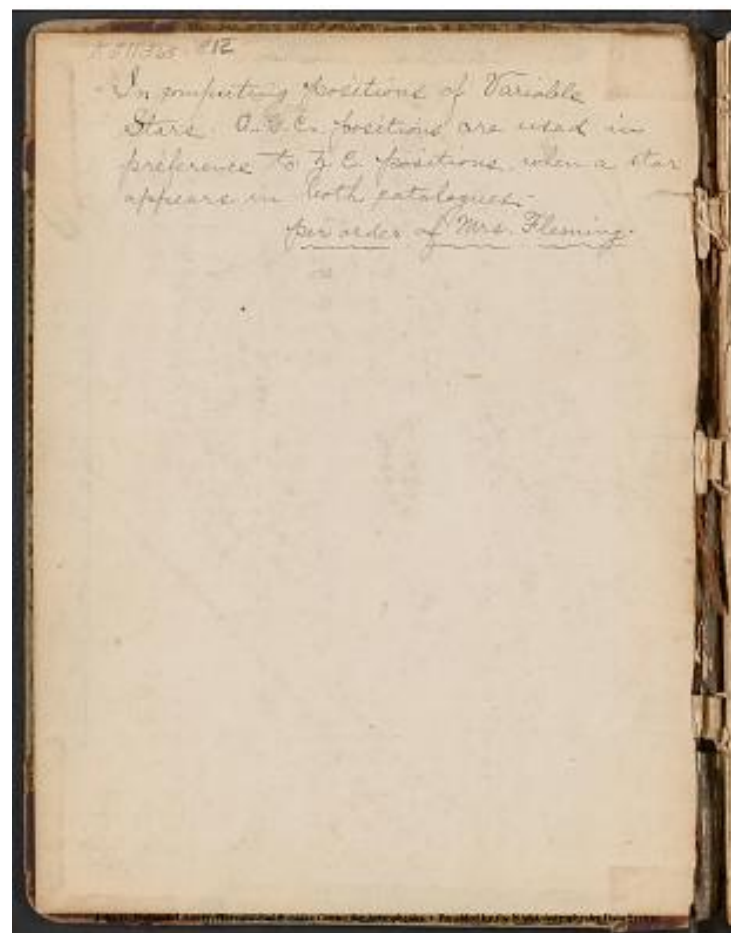 012
In computing positions of Variable
Stars. A.G.C. positions are used in
preference to Z.C. positions, when a star
appears in both catalogues.-
per order of Mrs. Fleming.